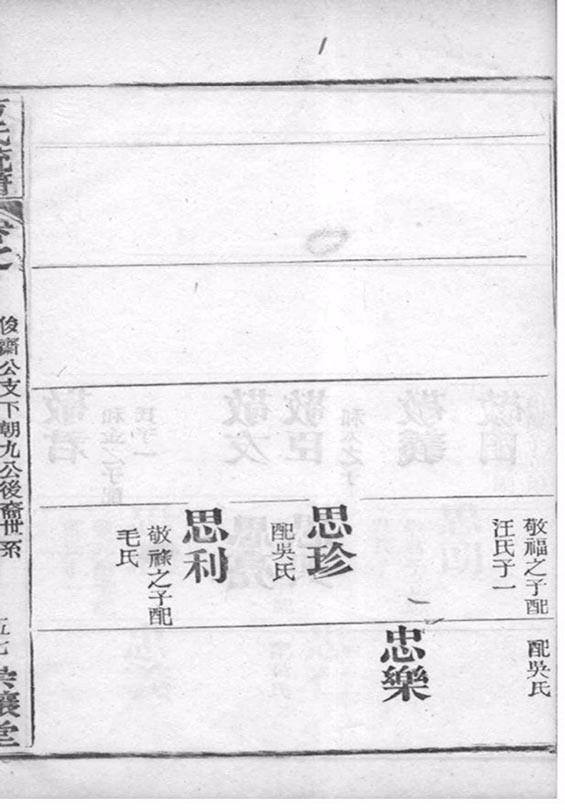 敬福之子配
汪氏子一
思珍
配吳氏
思利
敬祿之子配
毛氏
配吳氏
忠樂
氏統譜
卷之
俊齋公支下朝九公後裔世系